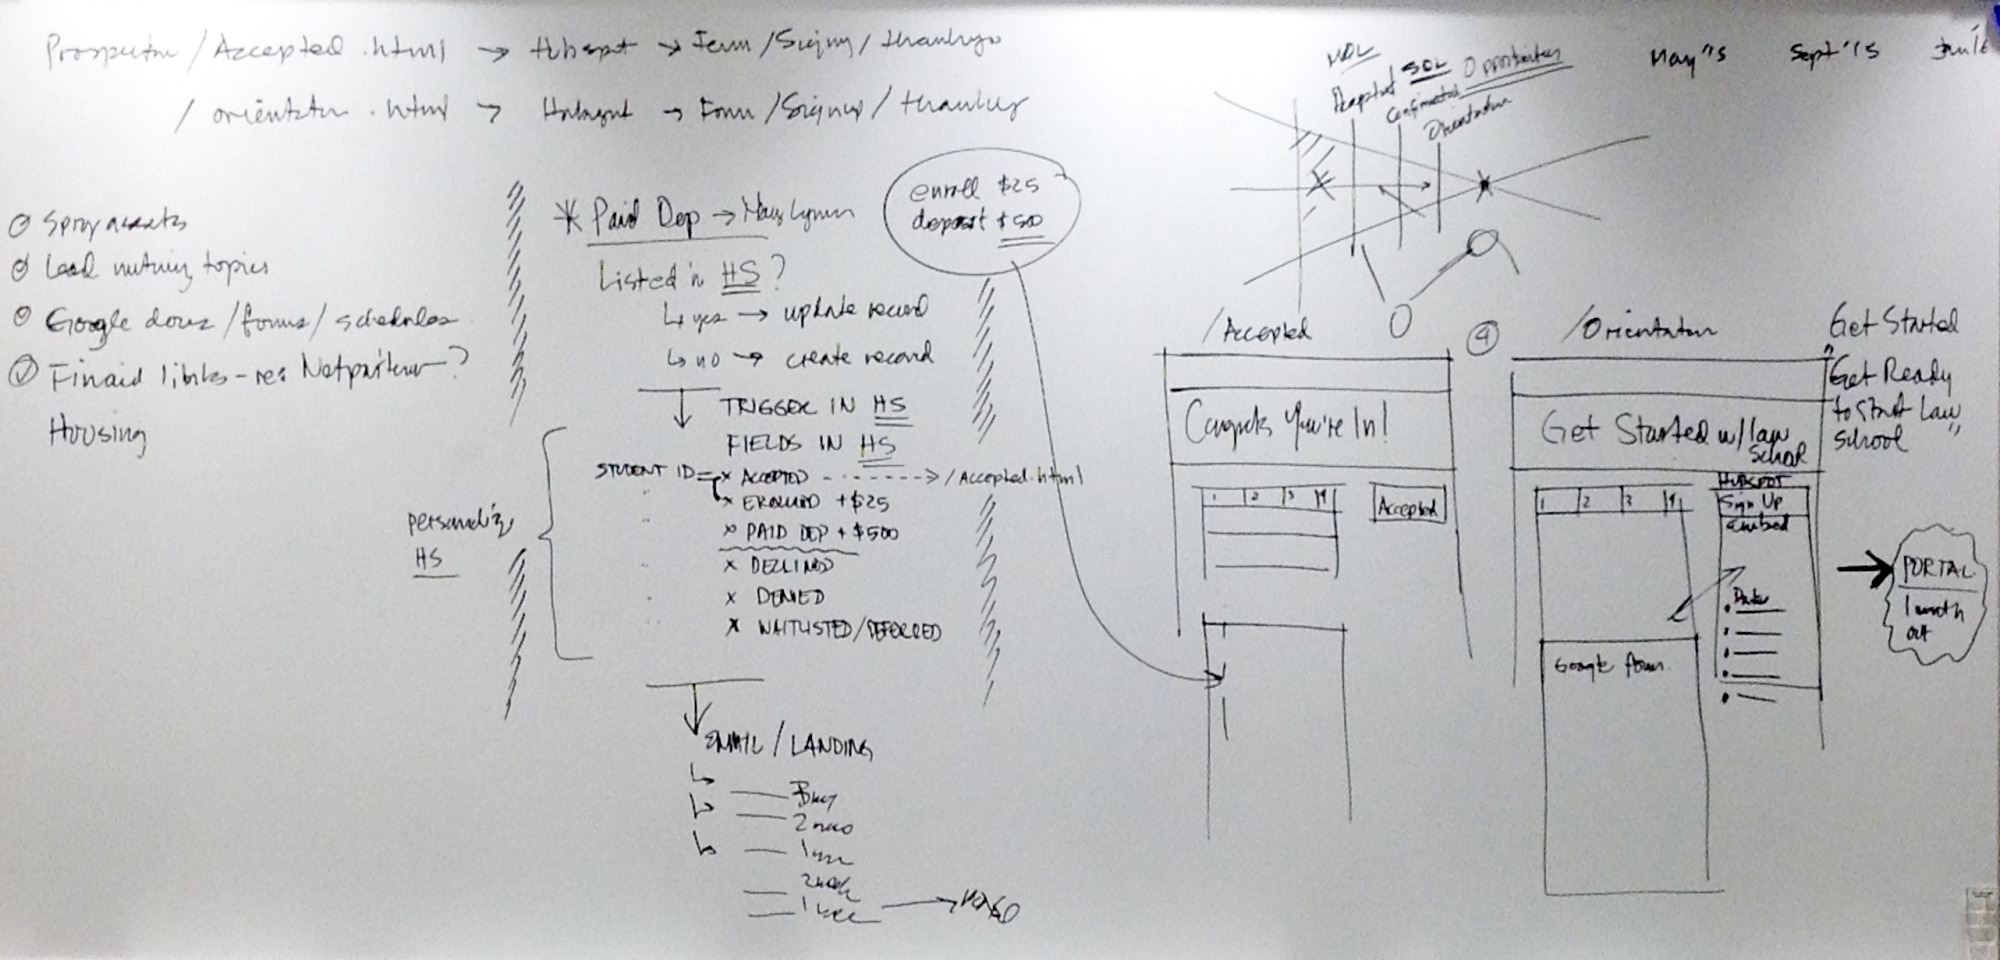 /Accepted.html → Hubspot → Form /Signup / thankyo
/ orientation .html → Hubspot → Form /Signup / thankyou
May '15 Sept '15
Accepted SQL Opportunities
Confirmation
Orientation
assets
Lead nurturing topics
Google docs /forms/ schedules
Finaid links - re: Netpartner?
Housing
* Paid Dep → Mary Lynn
enroll $25
deposit $500
Listed in HS?
↳ yes → update record
↳ no → create record
TRIGGER IN HS
FIELDS IN HS
STUDENT ID = x ACCEPTED -------> /Accepted.html
" x ENROLLED + $25
" x PAID DEP + $500
x DECLINED
x DENIED
x WAITLISTED/DEFERRED
personalize
HS
EMAIL / LANDING
2 mos
1 mo
2 week
1 week →
/Accepted
Congrats You're In!
1 2 3 4
Accepted
4
/Orientation
Get Started w/ law
school
1 2 3 4
HUBSPOT
Sign Up
embed
Date
Google form
Get Started
"Get Ready
to start Law
school"
→ PORTAL
1 month
out